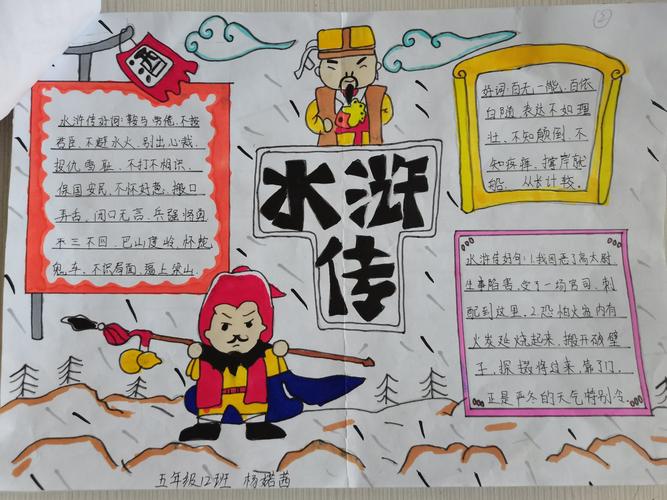 酒
水浒传好词:鞍马劳倦、不按
君臣、不避水火、别出心裁、
报仇雪耻、不打不相识、
保国安民、不怀好意、搬口
弄舌、闭口无言、兵器将勇
不三不四、巴山度岭、
鬼车、不识局面、逼上梁山
水浒
传
好词:百无一能、百依
百随、表达不如理
壮、不知颠倒、不
知疼痒、撑岸就
船、从长计较。
水浒传好句:1.我因恶了高太尉
生事陷害,受了一场官司,刺
配到这里。2.恐怕火盆内有
火炭延烧起来,搬开破壁
子,探
正是严冬的天气特别冷
五年级12班 杨
2